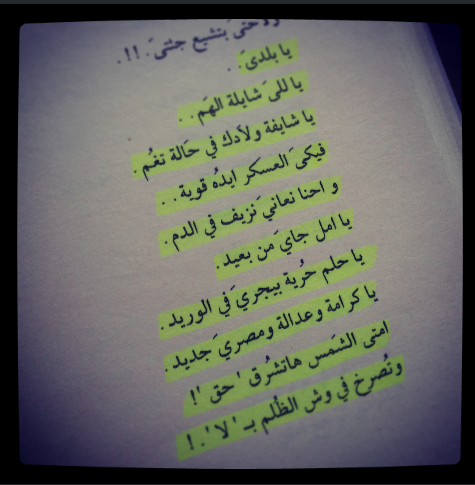 ولا حتى بتشبع جثتى.!!.
يا بلدىَ. .
يا للى شايلة الهَم. .
يا شايفة ولادك في حَالة تغُم.
فيكى العسكر ايدُه قوية. .
و احنا نعاني نَزيف في الدم.
يا امل جاي من بعيد.
يا حلم حُرية بيجري في الوريد.
يا كرامة وعدالة ومصري جَديد.
امتى الشمس هاتشرُق ' حق '!
ونُصرخ في وش الظُلم بـ ' لا '.!